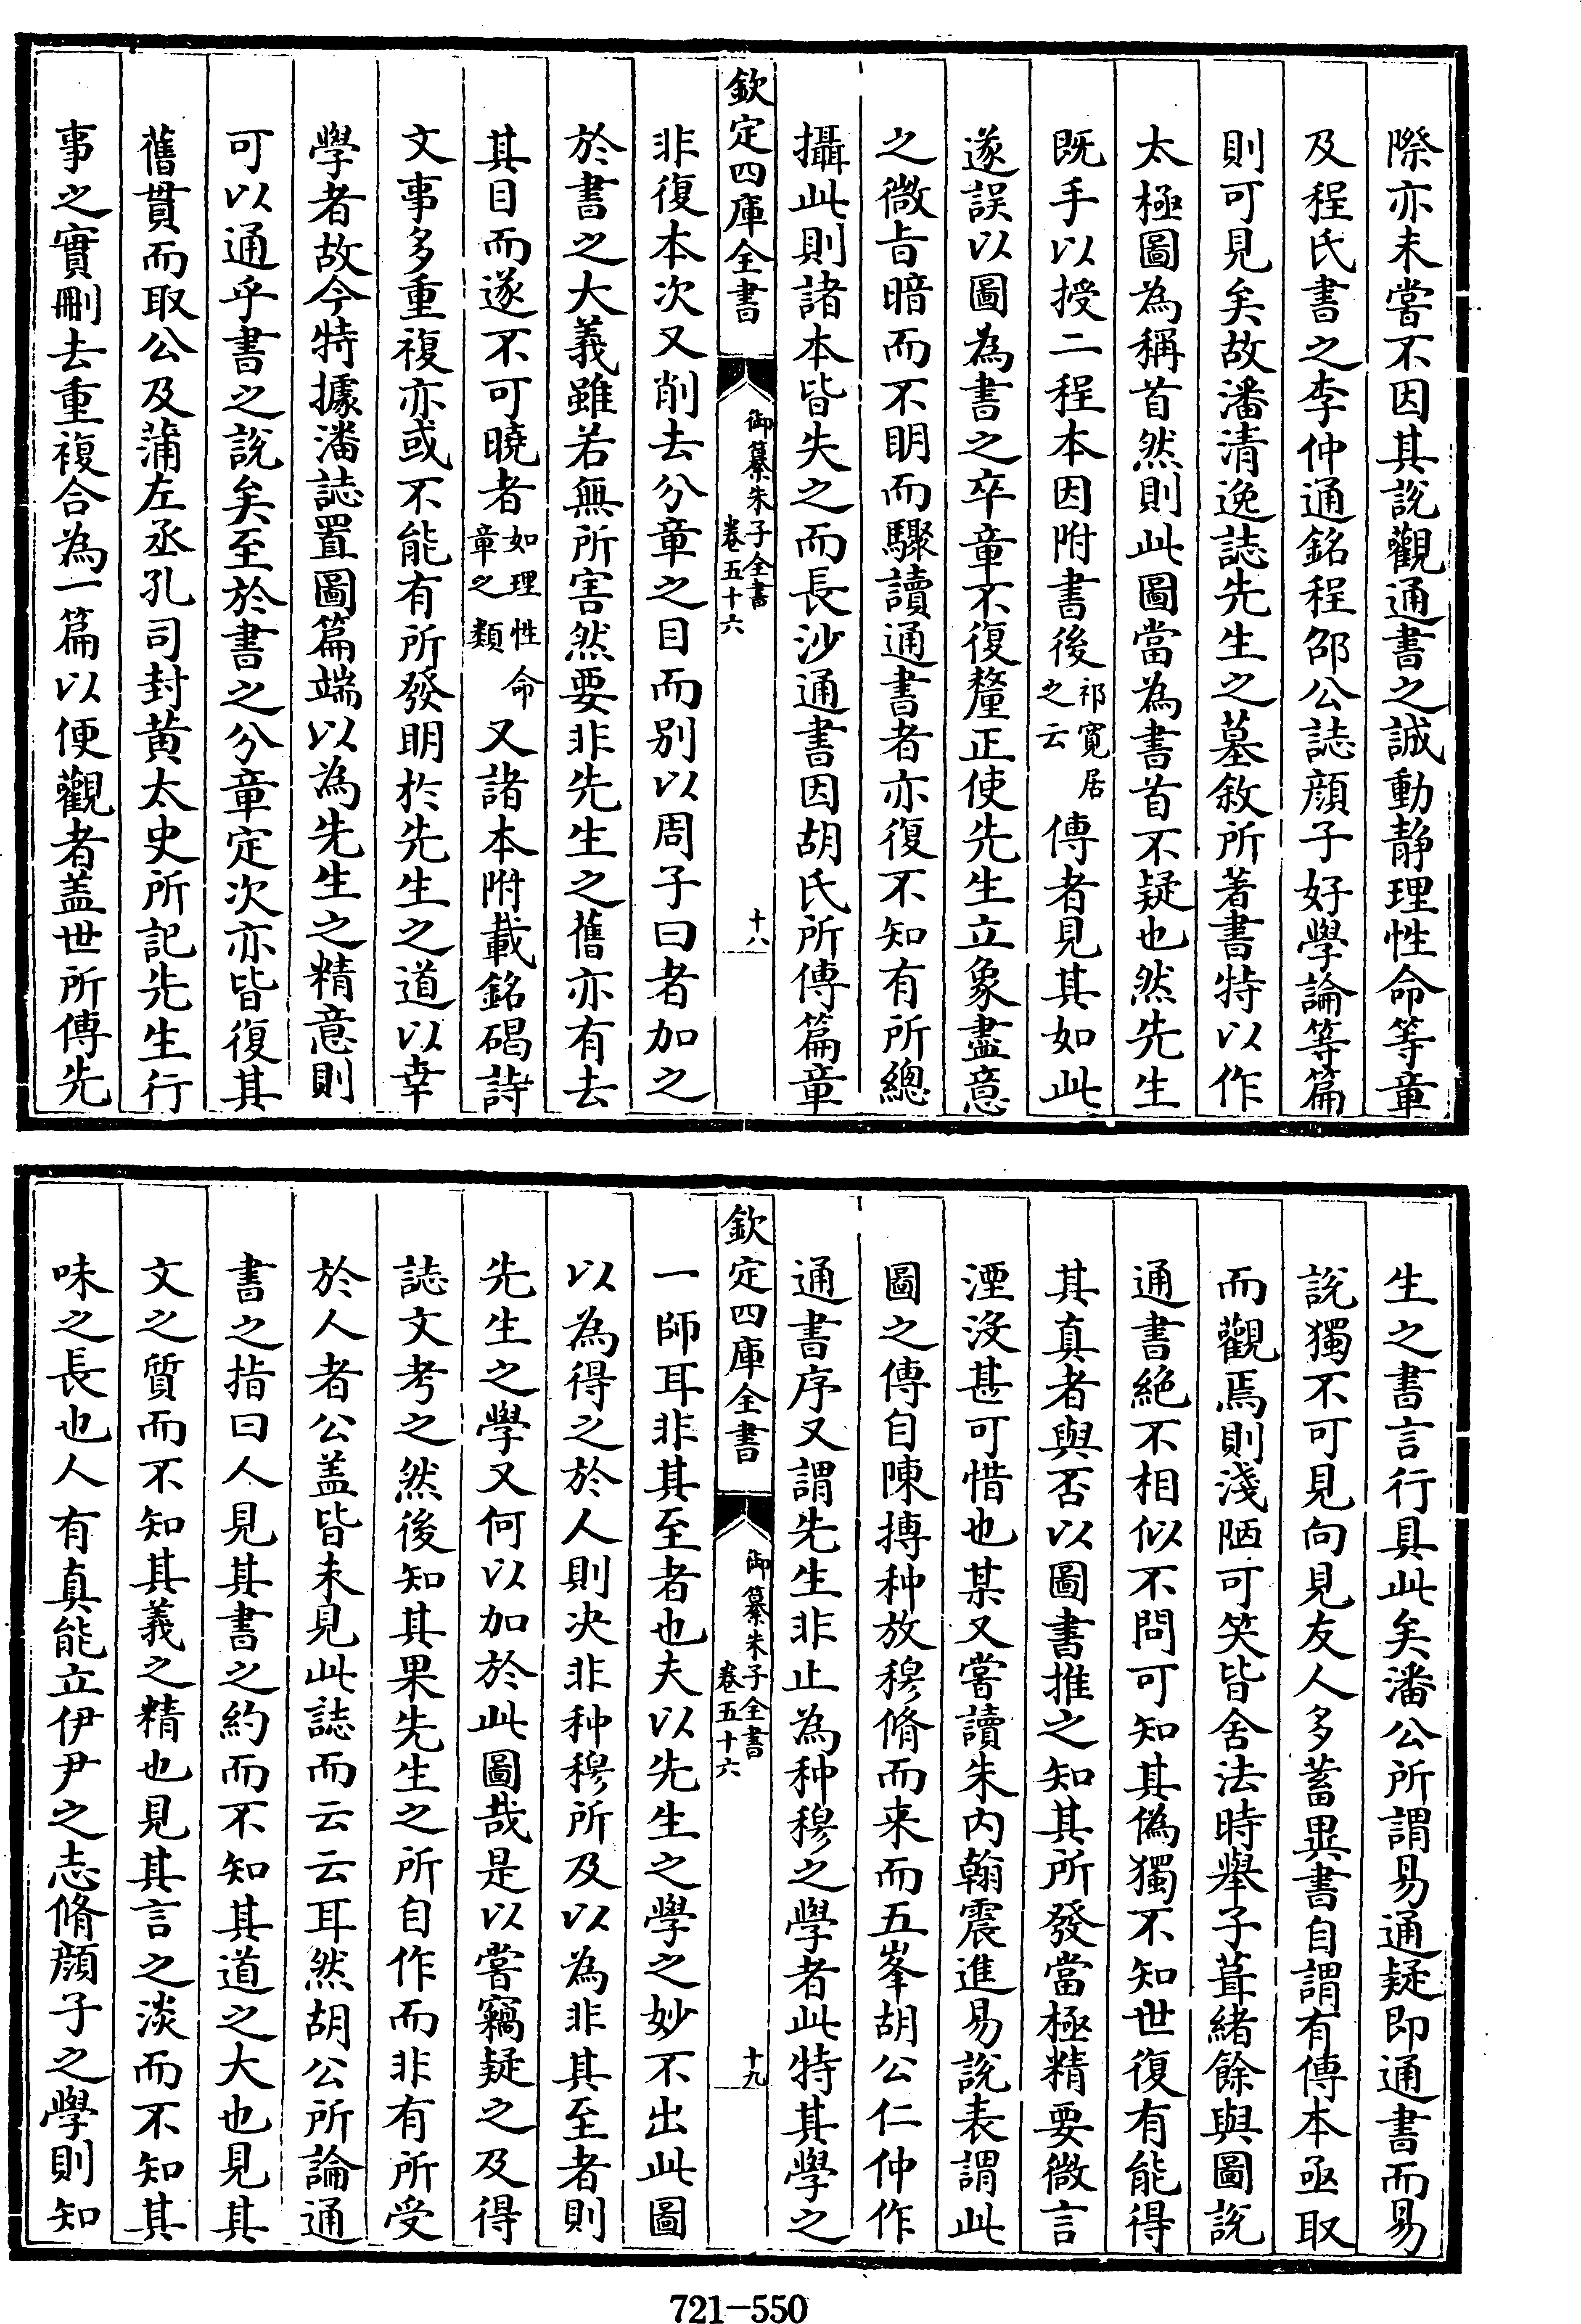 際亦未嘗不因其說觀通書之誠動靜理性命等章
及程氏書之李仲通銘程邵公誌顔子好學論等篇
則可見矣故潘清逸誌先生之墓敘所著書特以作
太極圖為稱首然則此圖當為書首不疑也然先生
既手以授二程本因附書後祁寛居之云傳者見其如此
遂誤以圖為書之卒章不復釐正使先生立象盡意
之微㫖暗而不明而驟讀通書者亦復不知有所總
攝此則諸本皆失之而長沙通書因胡氏所傳篇章
欽定四庫全書
御纂朱子全書
卷五十六
十八
非復本次又削去分章之目而别以周子曰者加之
於書之大義雖若無所害然要非先生之舊亦有去
其目而遂不可曉者如理性命章之類又諸本附載銘碣詩
文事多重複亦或不能有所發明於先生之道以幸
學者故今特據潘誌置圖篇端以為先生之精意則
可以通乎書之說矣至於書之分章定次亦皆復其
舊貫而取公及蒲左丞孔司封黄太史所記先生行
事之實刪去重複合為一篇以便觀者盖世所傳先
生之書言行具此矣潘公所謂易通疑即通書而易
說獨不可見向見友人多蓄異書自謂有傳本亟取
而觀焉則淺陋可笑皆舍法時舉子葺緒餘與圖說
通書絶不相似不問可知其偽獨不知世復有能得
其真者與否以圖書推之知其所發當極精要微言
湮沒甚可惜也某又嘗讀朱内翰震進易說表謂此
圖之傳自陳摶种放穆脩而来而五峯胡公仁仲作
通書序又謂先生非止為种穆之學者此特其學之
欽定四庫全書
御纂朱子全書
卷五十六
十九
一師耳非其至者也夫以先生之學之妙不出此圖
以為得之於人則决非种穆所及以為非其至者則
先生之學又何以加於此圖哉是以嘗竊疑之及得
誌文考之然後知其果先生之所自作而非有所受
於人者公盖皆未見此誌而云云耳然胡公所論通
書之指曰人見其書之約而不知其道之大也見其
文之質而不知其義之精也見其言之淡而不知其
味之長也人有真能立伊尹之志脩顔子之學則知
721-550